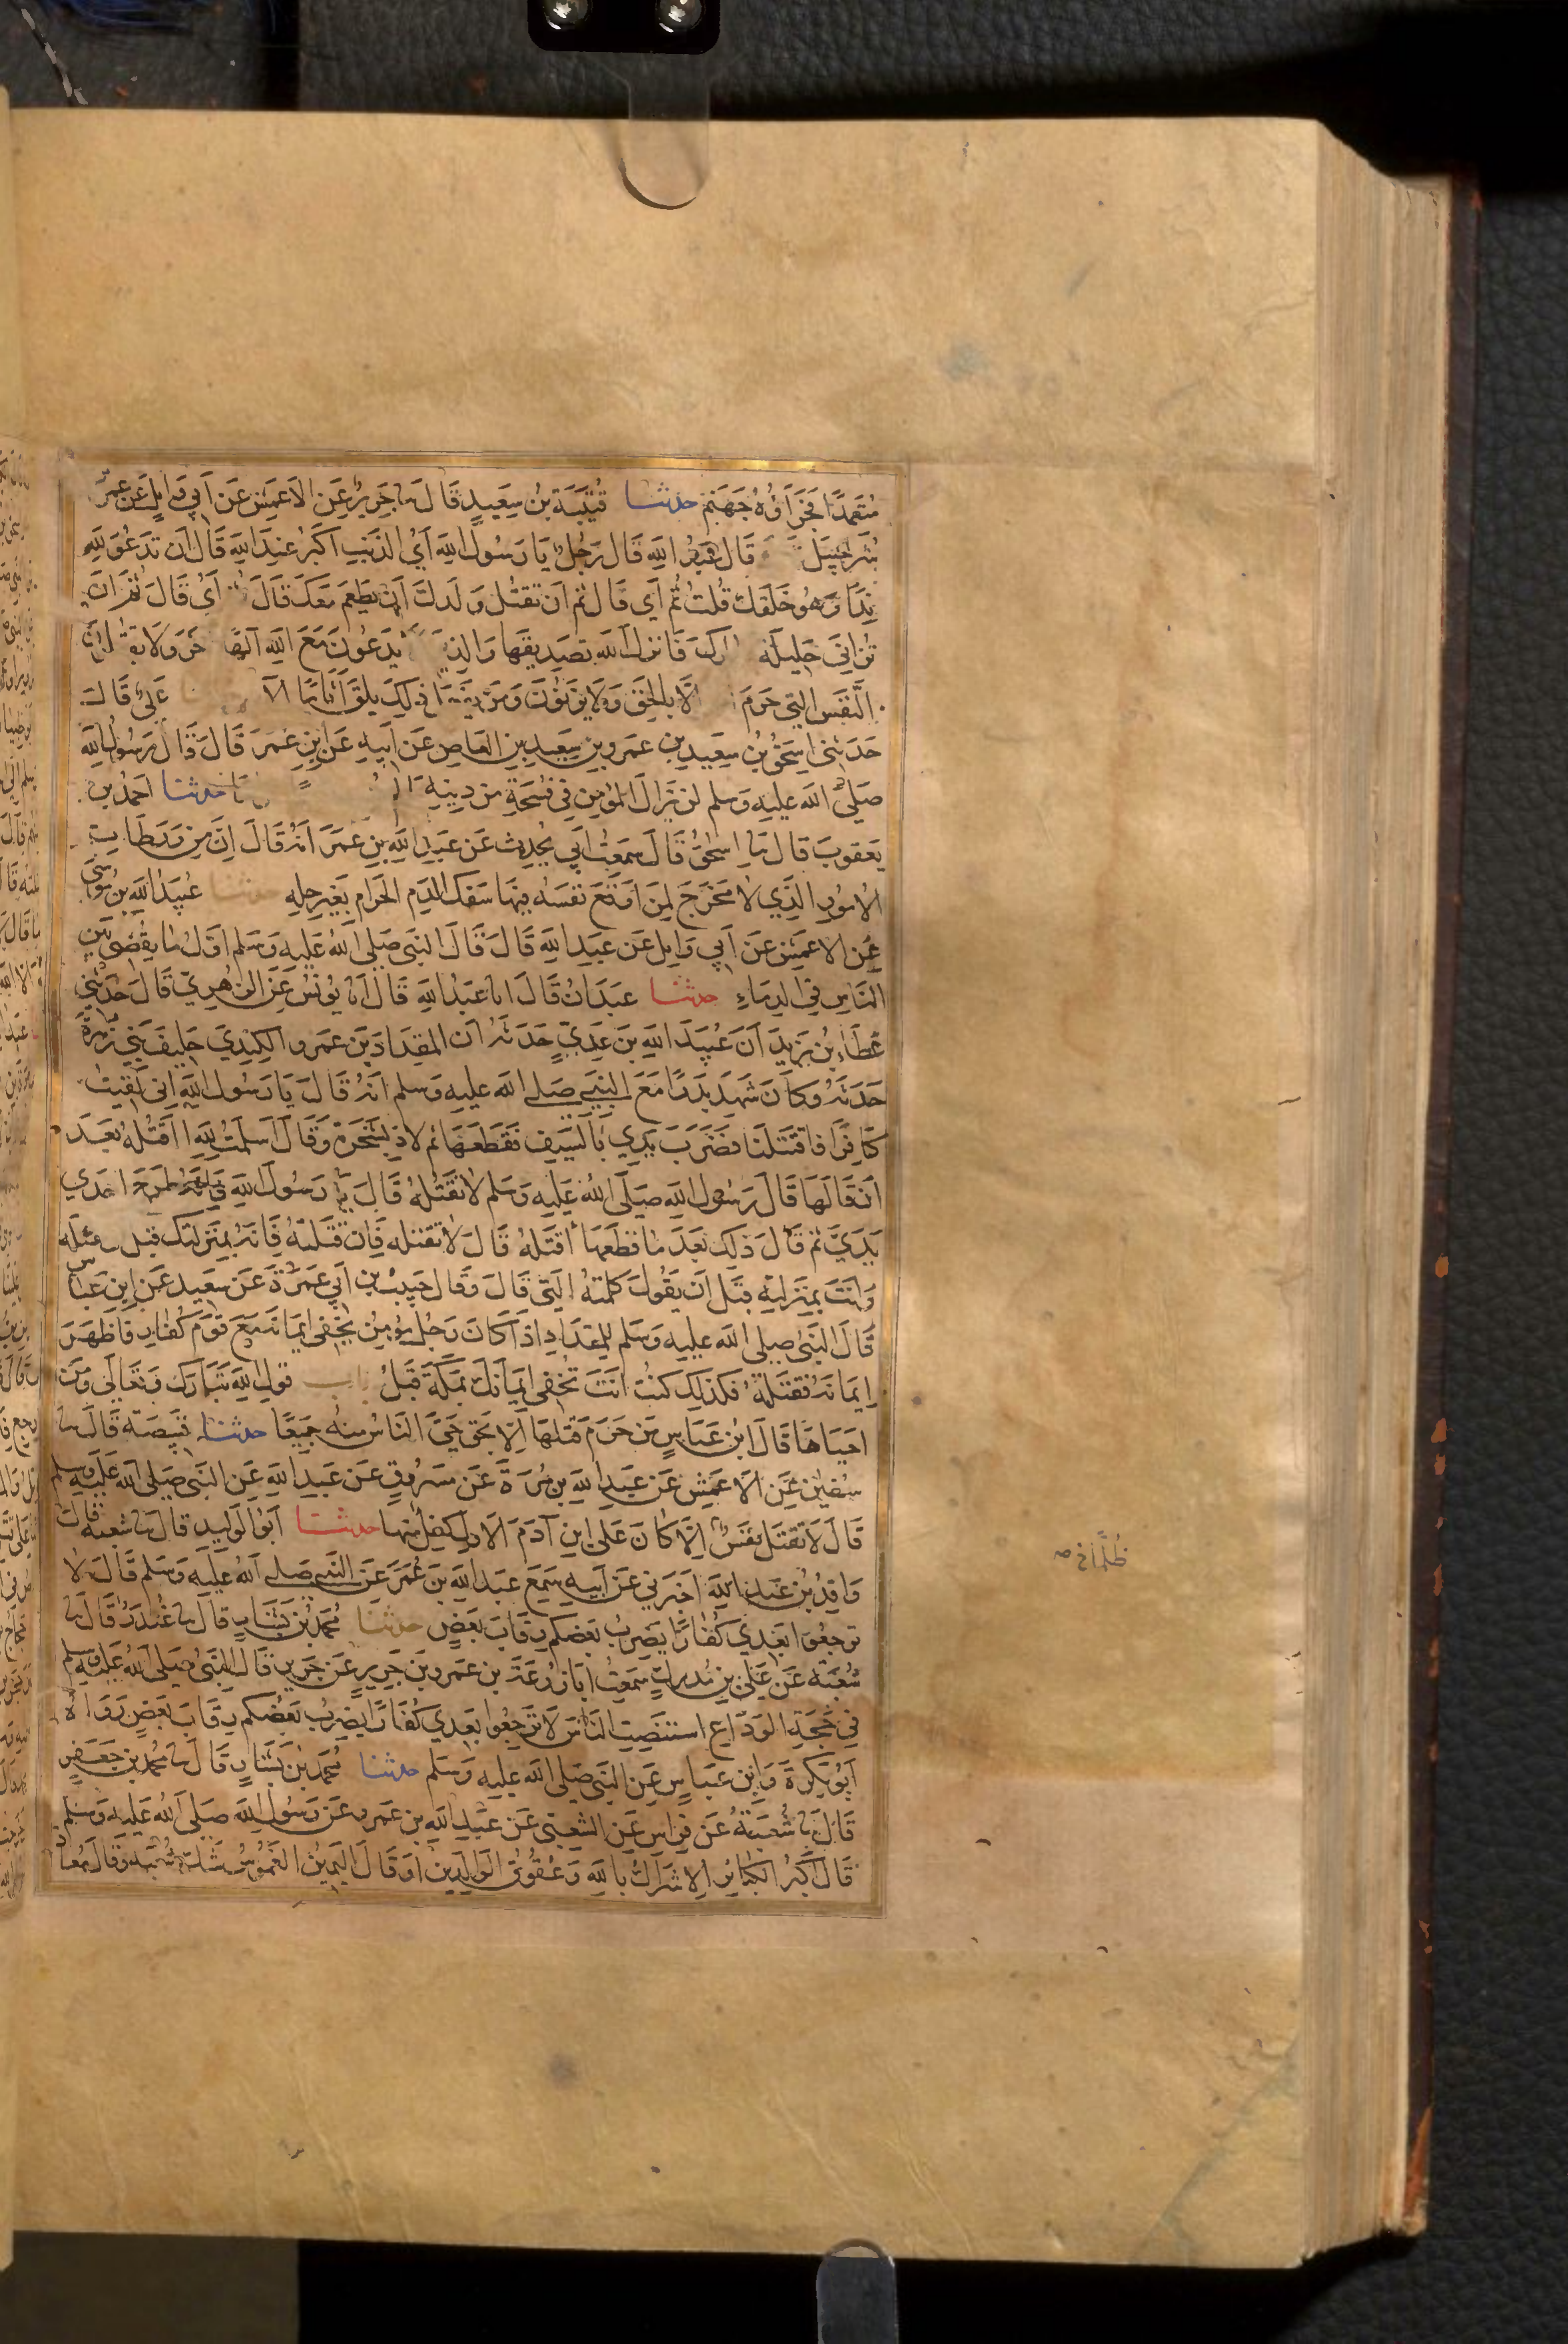 مُتَعَمِّدًا فَجَزَاؤُهُ جَهَنَّم حدثنا قُتَيْبَة بنُ سَعِيدٍ قَالَ نا جَرِيرٌ عَنِ الاَعمَشِ عَن اَبِي وَايِلٍ عَن عَمرِ
شُرَحبِيلَ قَالَ عَبدُ اللّهِ قَالَ رَجُلٌ يَا رَسُولَ اللّهِ اَيُّ الذَنبِ اَكبَرُ عِندَ اللّهِ قَالَ اَن تَدعُوَ للّهِ
نِدًّا وَهُوَ خَلَقَكَ قُلتُ ثُمَّ اَي قَالَ ثُمَّ اَن تَقتُلَ وَلَدَكَ اَن يَطعَمَ مَعَكَ قَالَ اَي قَالَ ثُمَّ اَن
تُزَانِيَ حَلِيلَة فَاَنزَلَ اللّهُ تَصدِيقَهَا وَالذِ يَدعُونَ مَعَ اللّهِ اِلَهًا خَرَ وَلَا
النَّفسَ التِي حَرَّمَ اِلَّا بِالحَقِّ وَلَا يَزنُونَ وَمَن ذَلِكَ يَلقَ اَثَامًا الآ عَلِيٌّ قَالَ
حَدَثَنِي اِسحَقُ بنُ سَعِيدِ بنِ عَمرِو بنِ سَعِيدِ بنِ العَاصِ عَن اَبِيهِ عَن ابنِ عُمَرَ قَالَ قَالَ رَسُولُ اللّهِ
صَلى اللّه عَلِيهِ وَسَلم لَن يَزَالَ المُؤمِن فِي فُسحَةٍ مِن دِينِهِ حدثنا اَحمَدُ بن
يَعقُوبَ قَالَ نا اِسحَقُ قَالَ سَمِعتُ اَبِي يُحَدِثُ عَن عَبدِ اللّهِ بنِ عُمَرَ اَنَّهُ قَالَ اِنَّ مِن وَرَطَاتِ
الاُمُورِ الذِي لَا مَخرَجَ لِمَن اَوقَعَ نَفسَهُ فِيهَا سَفكَ الدَمِ الحَرَامِ بِغَيرِ حِلِهِ حدثنا عُبَيدُ اللّهِ بنُ مُوسَى
عَنِ الاَعمَشِ عَن اَبِي وَايِلٍ عَن عَبدِ اللّهِ قَالَ قَالَ النَبِيُّ صَلى اللّهُ عَلَيهِ وَسَلم اَوَّلُ مَا يُقضَى بَينَ
النَاسِ فِي الدِمَاءِ حدثنا عَبدَانُ قَالَ انا عَبدُ اللّهِ قَالَ انا يُونُسُ عَنِ الزُهرِيِّ قَالَ حَدَثَنِي
عَطَاءُ بنُ يَزِيدَ اَنَّ عُبَيدَ اللّهِ بنَ عَدِيٍّ حَدَثَهُ اَن المِقدَادَ بنَ عَمرٍو الكِندِيَ حَلِيفَ بَنِي زُهرَةَ
حَدَثَهُ وَكَانَ شَهِدَ بَدرًا مَعَ النَبِيِّ صَلى اللّه عَلِيهِ وَسَلم اَنَّهُ قَالَ يَا رَسُولَ اللّهِ اِني لَقِيتُ
كَافِرًا فَاقتَتَلنَا فَضَرَبَ يَدِي بِالسَيفِ فَقَطَعَهَا ثُم لَاذَ بِشَجَرَة وَقَالَ اَسلَمتُ للّهِ ااَقتُلُهُ بَعدَ
اَن قَالَهَا قَالَ رَسُولُ اللّهِ صَلَى اللّهُ عَلَيهِ وَسَلم لَا تَقتُلهُ قَالَ يَا رَسُولَ اللّهِ فَاِنَّهُ طَرَحَ اِحدَي
يَدَيَّ ثُمَّ قَالَ ذَلِكَ بَعدَ مَا قَطَعَهَا اَقتُلُهُ قَالَ لَا تَقتُله فَاِن قَتَلتَهُ فَاِنَّهُ بِمَنزِلَتِكَ قَبلَ تقتله
وَاَنتَ بِمَنزِلَتِهِ قَبلَ اَن يَقُولَ كَلِمَتَهُ التِي قَالَ وَقَالَ حَبِيبُ بنُ اَبِي عَمرَةَ عَن سَعِيدٍ عَنِ ابنِ عَبَاس
قَالَ النَبِيُّ صَلى اللّه عَلِيهِ وَسَلم لِلمِقدَادِ اِذَا كَانَ رَجُلٌ مُؤمِنٌ يُخفِي اِيمَانَهُ مَعَ قَومٍ كُفَارٍ فَاَظهَرَ
اِيمَانَهُ فَقَتَلتَهُ فَكَذَلِكَ كُنتَ اَنتَ تُخفِي اِيمَانَكَ بِمَكَّةَ قَبلُ باب قَولِ اللّهِ تَبَارَكَ وَتَعَالَى وَمَن
اَحيَاهَا قَالَ ابنُ عَبَاسٍ مَن حَرَّمَ قَتلَهَا اِلَّا بِحَقٍ حَيِيَ النَاسُ مِنهُ جَمِيعًا حدثنا قَبِيصَة قَالَ نا
سُفيَن عَنِ الاَعمَشِ عَن عَبدِ اللّهِ بنِ مُرَةَ عَن مَسرُوقٍ عَن عَبدِ اللّهِ عَنِ النَبِيِّ صَلى اللّهُ عَلَيهِ وَسلم
قَالَ لَا تُقتَلُ نَفسٌ اِلَّا كَانَ عَلَى ابنِ آدَمَ الاَوَّلِ كِفلٌ مِنهَا حدثنا اَبُو الوَلِيدِ قَالَ نا شُعبَة قَالَ
وَاقِدُ بنُ عَبدِ اللّهِ اَخبَرَنِي عَن اَبِيهِ سَمِعَ عَبدَ اللّهِ بنَ عُمَرَ عَنِ النَبِيِّ صَلى اللّهُ عَلَيهِ وَسَلم قَالَ لَا
تَرجِعُوا بَعدِي كُفَارًا يَضرِبُ بَعضُكُم رِقَابَ بَعضٍ حدثنا مُحَمَدُ بنُ بَشَارٍ قَالَ نا غُندَرٌ قَالَ نا
شُعبَة عَن عَلِيِّ بنِ مُدرِكٍ سَمِعتُ اَبَا زُرعَةَ بنَ عَمرِو بنِ جَرِيرٍ عَن جَرِيرٍ قَالَ النَبِيُّ صَلى اللّهُ عَلَيهِ وَسلم
فِي حَجَّةِ الوَدَاعِ استَنصِتِ النَاسَ لَا تَرجِعُوا بَعدِي كُفَارًا يَضرِبُ بَعضُكُم رِقَابَ بَعضٍ رَوَاهُ
اَبُو بَكرَةَ وَابنُ عَبَاسٍ عَنِ النَبِيِّ صَلى اللّه عَلِيهِ وَسَلم حدثنا مُحَمَدُ بنُ بَشَارٍ قَالَ نا مُحَمد بنُ جَعفَرٍ
قَالَ نا شُعبَةُ عَن فِرَاسٍ عَنِ الشَعبِيِّ عَن عَبدِ اللّهِ بنِ عَمرٍو عَن رَسُولِ اللّهِ صَلى اللّهُ عَلَيهِ وَسَلم
قَالَ اَكبَرُ الكَبَائِرِ الاِشرَاكُ بِاللّهِ وَعُقُوقُ الوَالِدَينِ اَو قَالَ اليَمِينُ الغَمُوسُ شَكَّ شُعبَة وَقَالَ مُعَاذ